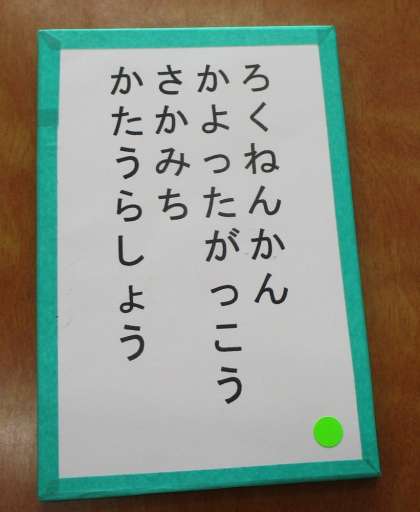 ろくねんかん
かよったがっこう
さかみち
かたうらしょう